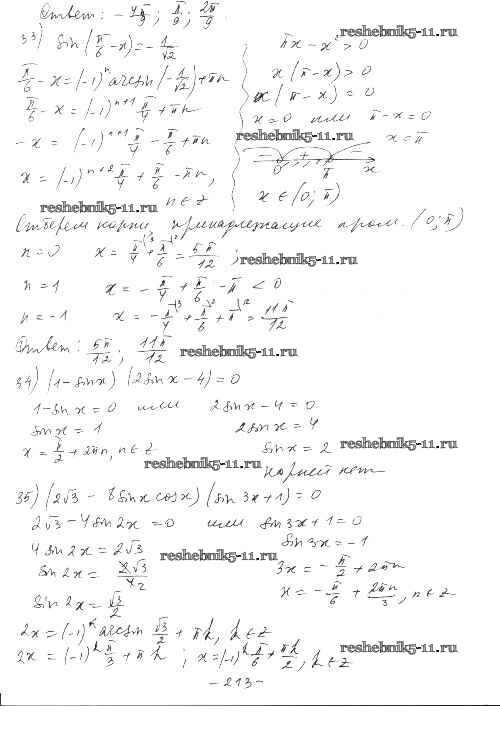 Ответ: - 4π/9 ; π/9 ; 2π/9.
reshebnik5-11.ru
33) sin(π/6 - x) = - 1/√2
πx - x² > 0
π/6 - x = (-1)ⁿ arcsin(- 1/√2) + πn
x(π - x) > 0
π/6 - x = (-1)ⁿ⁺¹ π/4 + πn
x(π - x) = 0
x = 0 или π - x = 0
reshebnik5-11.ru
- x = (-1)ⁿ⁺¹ π/4 - π/6 + πn
x = π
x = (-1)ⁿ⁺² π/4 + π/6 - πn,
0 π x
n ∈ Z
x ∈ (0; π)
reshebnik5-11.ru
Отберем корни, принадлежащие пром. (0; π)
n = 0 x = π/4 + π/6 = 5π/12 ;
reshebnik5-11.ru
n = 1 x = - π/4 + π/6 - π < 0
n = -1 x = - π/4 + π/6 + π = 11π/12
Ответ: 5π/12 ; 11π/12
reshebnik5-11.ru
34) (1 - sin x) (2 sin x - 4) = 0
1 - sin x = 0 или 2 sin x - 4 = 0
sin x = 1 2 sin x = 4
x = π/2 + 2πn, n ∈ Z sin x = 2
reshebnik5-11.ru
reshebnik5-11.ru
корней нет
35) (2√3 - 8 sin x cos x) (sin 3x + 1) = 0
2√3 - 4 sin 2x = 0 или sin 3x + 1 = 0
4 sin 2x = 2√3 sin 3x = -1
reshebnik5-11.ru
sin 2x = 2√3/4 2 3x = - π/2 + 2πn
sin 2x = √3/2 x = - π/6 + 2πn/3, n ∈ Z
2x = (-1)ᵏ arcsin √3/2 + πk, k ∈ Z
reshebnik5-11.ru
2x = (-1)ᵏ π/3 + πk ; x = (-1)ᵏ π/6 + πk/2, k ∈ Z
- 213 -